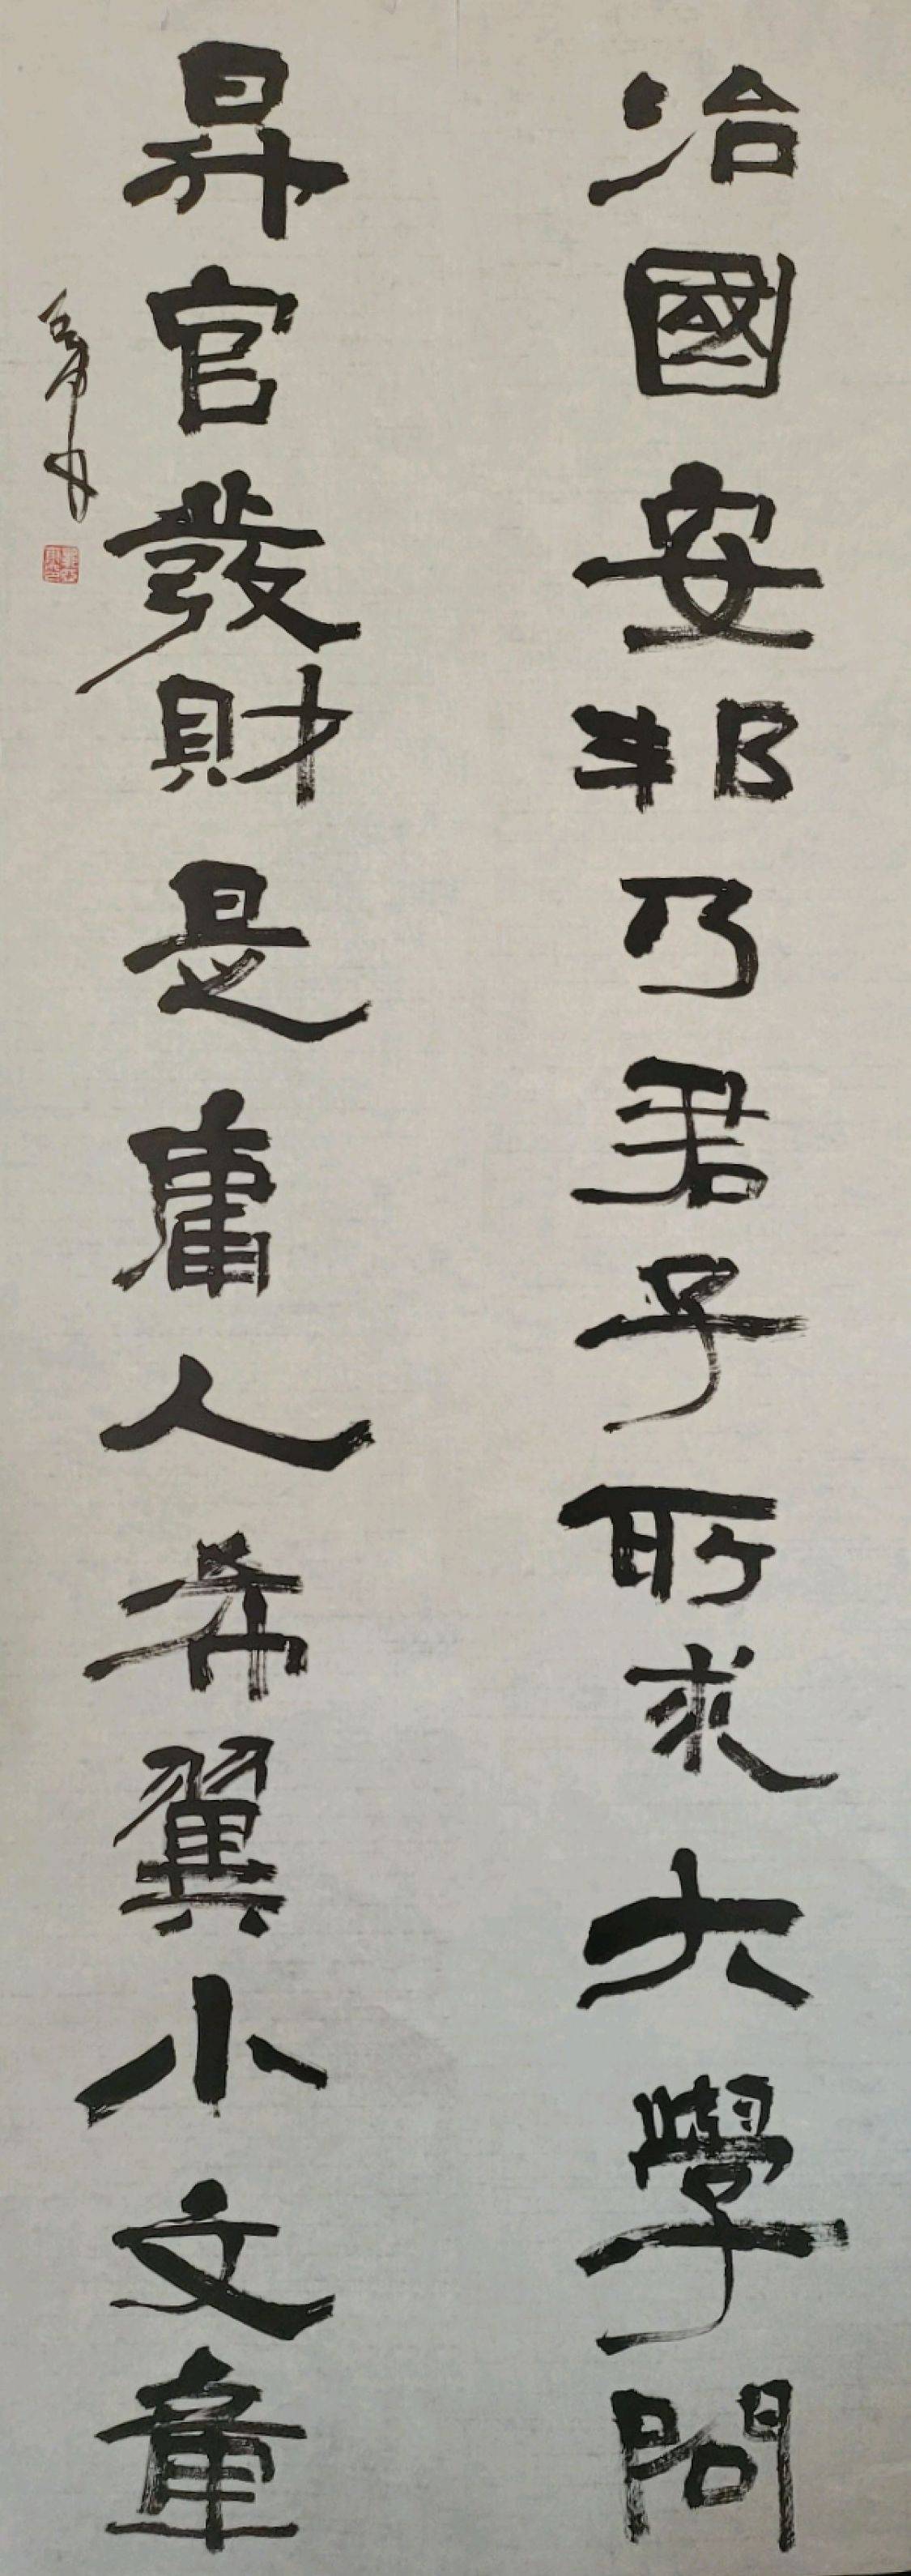 治國安邦乃君子所求大學問
昇官發財是庸人希翼小文章